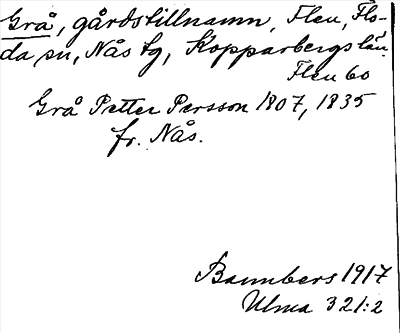 Grå, gårdstillnamn, Flen, Flo-
da sn, Nås tg, Kopparbergs län.
Flen 60
Grå Petter Persson 1807, 1835
fr. Nås.
Bannbers 1917
Ulma 321:2